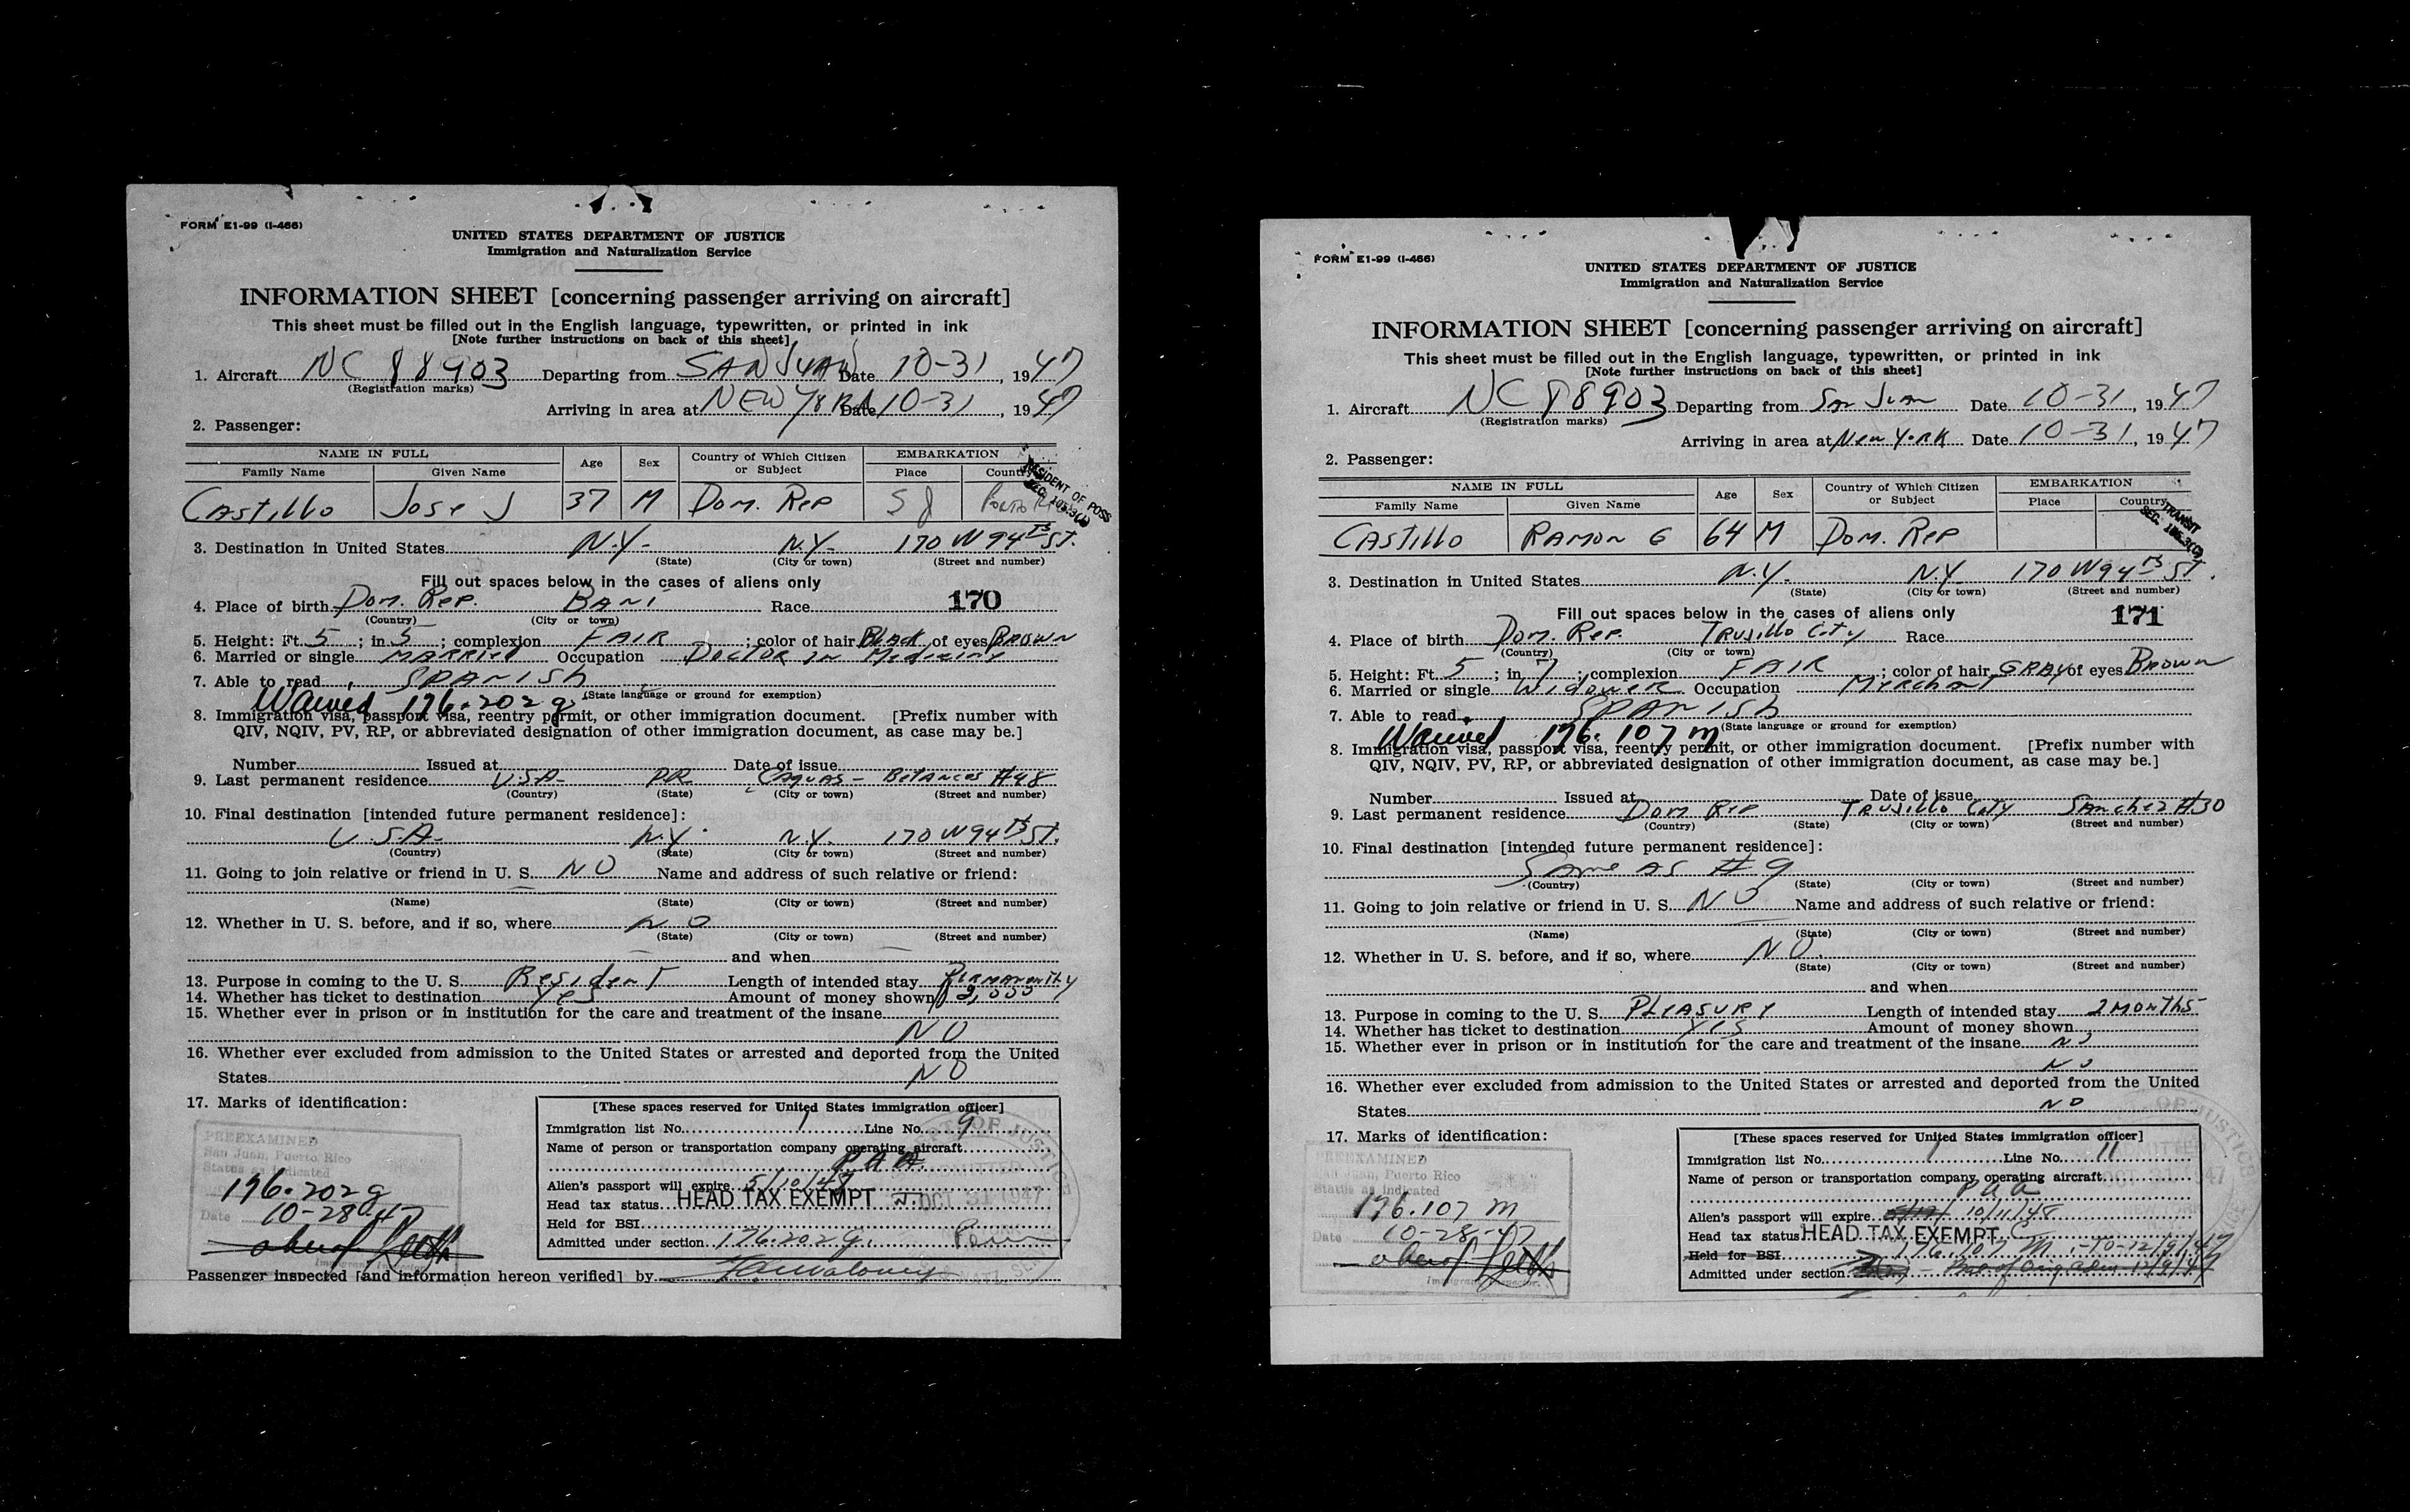 FORM E1-99 (I-466)
UNITED STATES DEPARTMENT OF JUSTICE
Immigration and Naturalization Service
INFORMATION SHEET [concerning passenger arriving on aircraft]
This sheet must be filled out in the English language, typewritten, or printed in ink
[Note further instructions on back of this sheet]
1. Aircraft NC 88903 Departing from SAN JUAN Date 10-31, 1947
(Registration marks)
Arriving in area at NEW YORK Date 10-31, 1947
2. Passenger:
NAME IN FULL Age Sex Country of Which Citizen or Subject EMBARKATION
Family Name Given Name Place Country
RESIDENT OF POSS
SEC.
Castillo Jose J 37 M Dom. Rep S J Porto
3. Destination in United States N.Y. N.Y. 170 W 94th St.
(State) (City or town) (Street and number)
Fill out spaces below in the cases of aliens only
4. Place of birth Dom. Rep. BANI Race 170
(Country) (City or town)
5. Height: Ft. 5; in. 5; complexion FAIR; color of hair Black of eyes BROWN
6. Married or single MARRIED Occupation Doctor in Medicine
7. Able to read, SPANISh
(State language or ground for exemption)
Waived 176.202g
8. Immigration visa, passport visa, reentry permit, or other immigration document. [Prefix number with
QIV, NQIV, PV, RP, or abbreviated designation of other immigration document, as case may be.]
Number Issued at Date of issue
9. Last permanent residence U.S.A. P.R. Caguas - Betances #48
(Country) (State) (City or town) (Street and number)
10. Final destination [intended future permanent residence]:
U.S.A. N.Y. N.Y. 170 W 94th St.
(Country) (State) (City or town) (Street and number)
11. Going to join relative or friend in U. S. NO Name and address of such relative or friend:
(Name) (State) (City or town) (Street and number)
12. Whether in U. S. before, and if so, where NO
(State) (City or town) (Street and number)
and when
13. Purpose in coming to the U. S. Resident Length of intended stay Permanently
14. Whether has ticket to destination Yes Amount of money shown 2,000
15. Whether ever in prison or in institution for the care and treatment of the insane
NO
16. Whether ever excluded from admission to the United States or arrested and deported from the United
States NO
17. Marks of identification:
PREEXAMINED
San Juan, Puerto Rico
Status as indicated
176.202g
Date 10-28-47
[These spaces reserved for United States immigration officer]
Immigration list No. 1 Line No. 9
Name of person or transportation company operating aircraft
P A A
Alien's passport will expire 5/10/48
Head tax status HEAD TAX EXEMPT
OCT 31 1947
Held for BSI
Admitted under section 176.202g.
Passenger inspected [and information hereon verified] by
FORM E1-99 (I-466)
UNITED STATES DEPARTMENT OF JUSTICE
Immigration and Naturalization Service
INFORMATION SHEET [concerning passenger arriving on aircraft]
This sheet must be filled out in the English language, typewritten, or printed in ink
[Note further instructions on back of this sheet]
1. Aircraft NC 88903 Departing from San Juan Date 10-31, 1947
(Registration marks)
Arriving in area at New York Date 10-31, 1947
2. Passenger:
NAME IN FULL Age Sex Country of Which Citizen or Subject EMBARKATION
Family Name Given Name Place Country
TRANSIT
SEC.
Castillo RAMON G 64 M Dom. Rep
3. Destination in United States N.Y. N.Y 170 W 94th St.
(State) (City or town) (Street and number)
Fill out spaces below in the cases of aliens only
4. Place of birth Dom. Rep. Trujillo City Race 171
(Country) (City or town)
5. Height: Ft. 5; in. 7; complexion FAIR; color of hair GRAY of eyes Brown
6. Married or single Widower Occupation Merchant
7. Able to read, SPANISh
(State language or ground for exemption)
Waived 176.107m
8. Immigration visa, passport visa, reentry permit, or other immigration document. [Prefix number with
QIV, NQIV, PV, RP, or abbreviated designation of other immigration document, as case may be.]
Number Issued at Date of issue
9. Last permanent residence Dom Rep Trujillo City Sanchez #30
(Country) (State) (City or town) (Street and number)
10. Final destination [intended future permanent residence]:
Same as #9
(Country) (State) (City or town) (Street and number)
11. Going to join relative or friend in U. S. NO Name and address of such relative or friend:
(Name) (State) (City or town) (Street and number)
12. Whether in U. S. before, and if so, where NO.
(State) (City or town) (Street and number)
and when
13. Purpose in coming to the U. S. PLEASURE Length of intended stay 2 MONThS
14. Whether has ticket to destination YES Amount of money shown
15. Whether ever in prison or in institution for the care and treatment of the insane NO
NO
16. Whether ever excluded from admission to the United States or arrested and deported from the United
States NO
17. Marks of identification:
PREEXAMINED
San Juan, Puerto Rico
Status as indicated
176.107 m
Date 10-28-47
[These spaces reserved for United States immigration officer]
Immigration list No. 1 Line No. 11
Name of person or transportation company operating aircraft
P a a
Alien's passport will expire 10/11/48
Head tax status HEAD TAX EXEMPT
Held for BSI 176.107 M - To - 12/9/47
Admitted under section